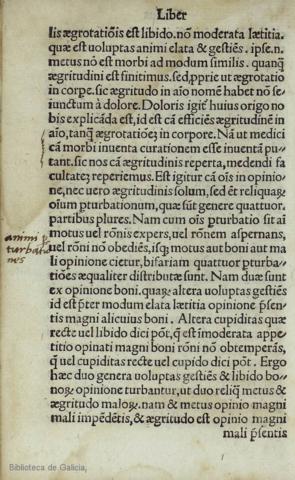 Liber
lis ægrotatiõis est libido. nõ moderata lætitia.
quæ est uoluptas animi elata & gestiẽs. ipse. n.
metus nõ est morbi ad modum similis. quanq̃
ægritudini est finitimus. sed, pprie ut ægrotatio
in corpe. sic ægritudo in aĩo nomẽ habet nõ se
iunctum à dolore. Doloris igit̃ huius origo no
bis explicãda est, id est cã efficiẽs ægritudinẽ in
aĩo, tanq̃ ægrotatiõeʒ in corpore. Nã ut medici
cã morbi inuenta curationem esse inuentã pu-
tant. sic nos cã ægritudinis reperta, medendi fa
cultateʒ reperiemus. Est igitur cã oĩs in opinio-
ne, nec uero ægritudinis solum, sed ẽt reliquaꝝ
oĩum pturbationum, quæ sũt genere quattuor.
partibus plures. Nam cum oĩs pturbatio sit aĩ
motus uel rõnis expers, uel rõnem aspernans,
uel rõni nõ obediẽs, isq; motus aut boni aut ma
li opinione cietur, bifariam quattuor pturba-
tiões æqualiter distributæ sunt. Nam duæ sunt
ex opinione boni. quaꝝ altera uoluptas gestiẽs
id est p̃ter modum elata lætitia opinione p̃sen-
tis magni alicuius boni. Altera cupiditas quæ
recte uel libido dici põt, q̃ est ĩmoderata appe-
titio opinati magni boni rõni nõ obtemperãs,
q̃ uel cupiditas recte uel cupido dici põt. Ergo
hæc duo genera uoluptas gestiẽs & libido bo-
noꝝ opinione turbantur, ut duo reliq̃ metus &
ægritudo maloꝝ. nam & metus opinio magni
mali impẽdẽtis, & ægritudo est opinio magni
mali p̃sentis
animi p
turbatio
nes
Biblioteca de Galicia,